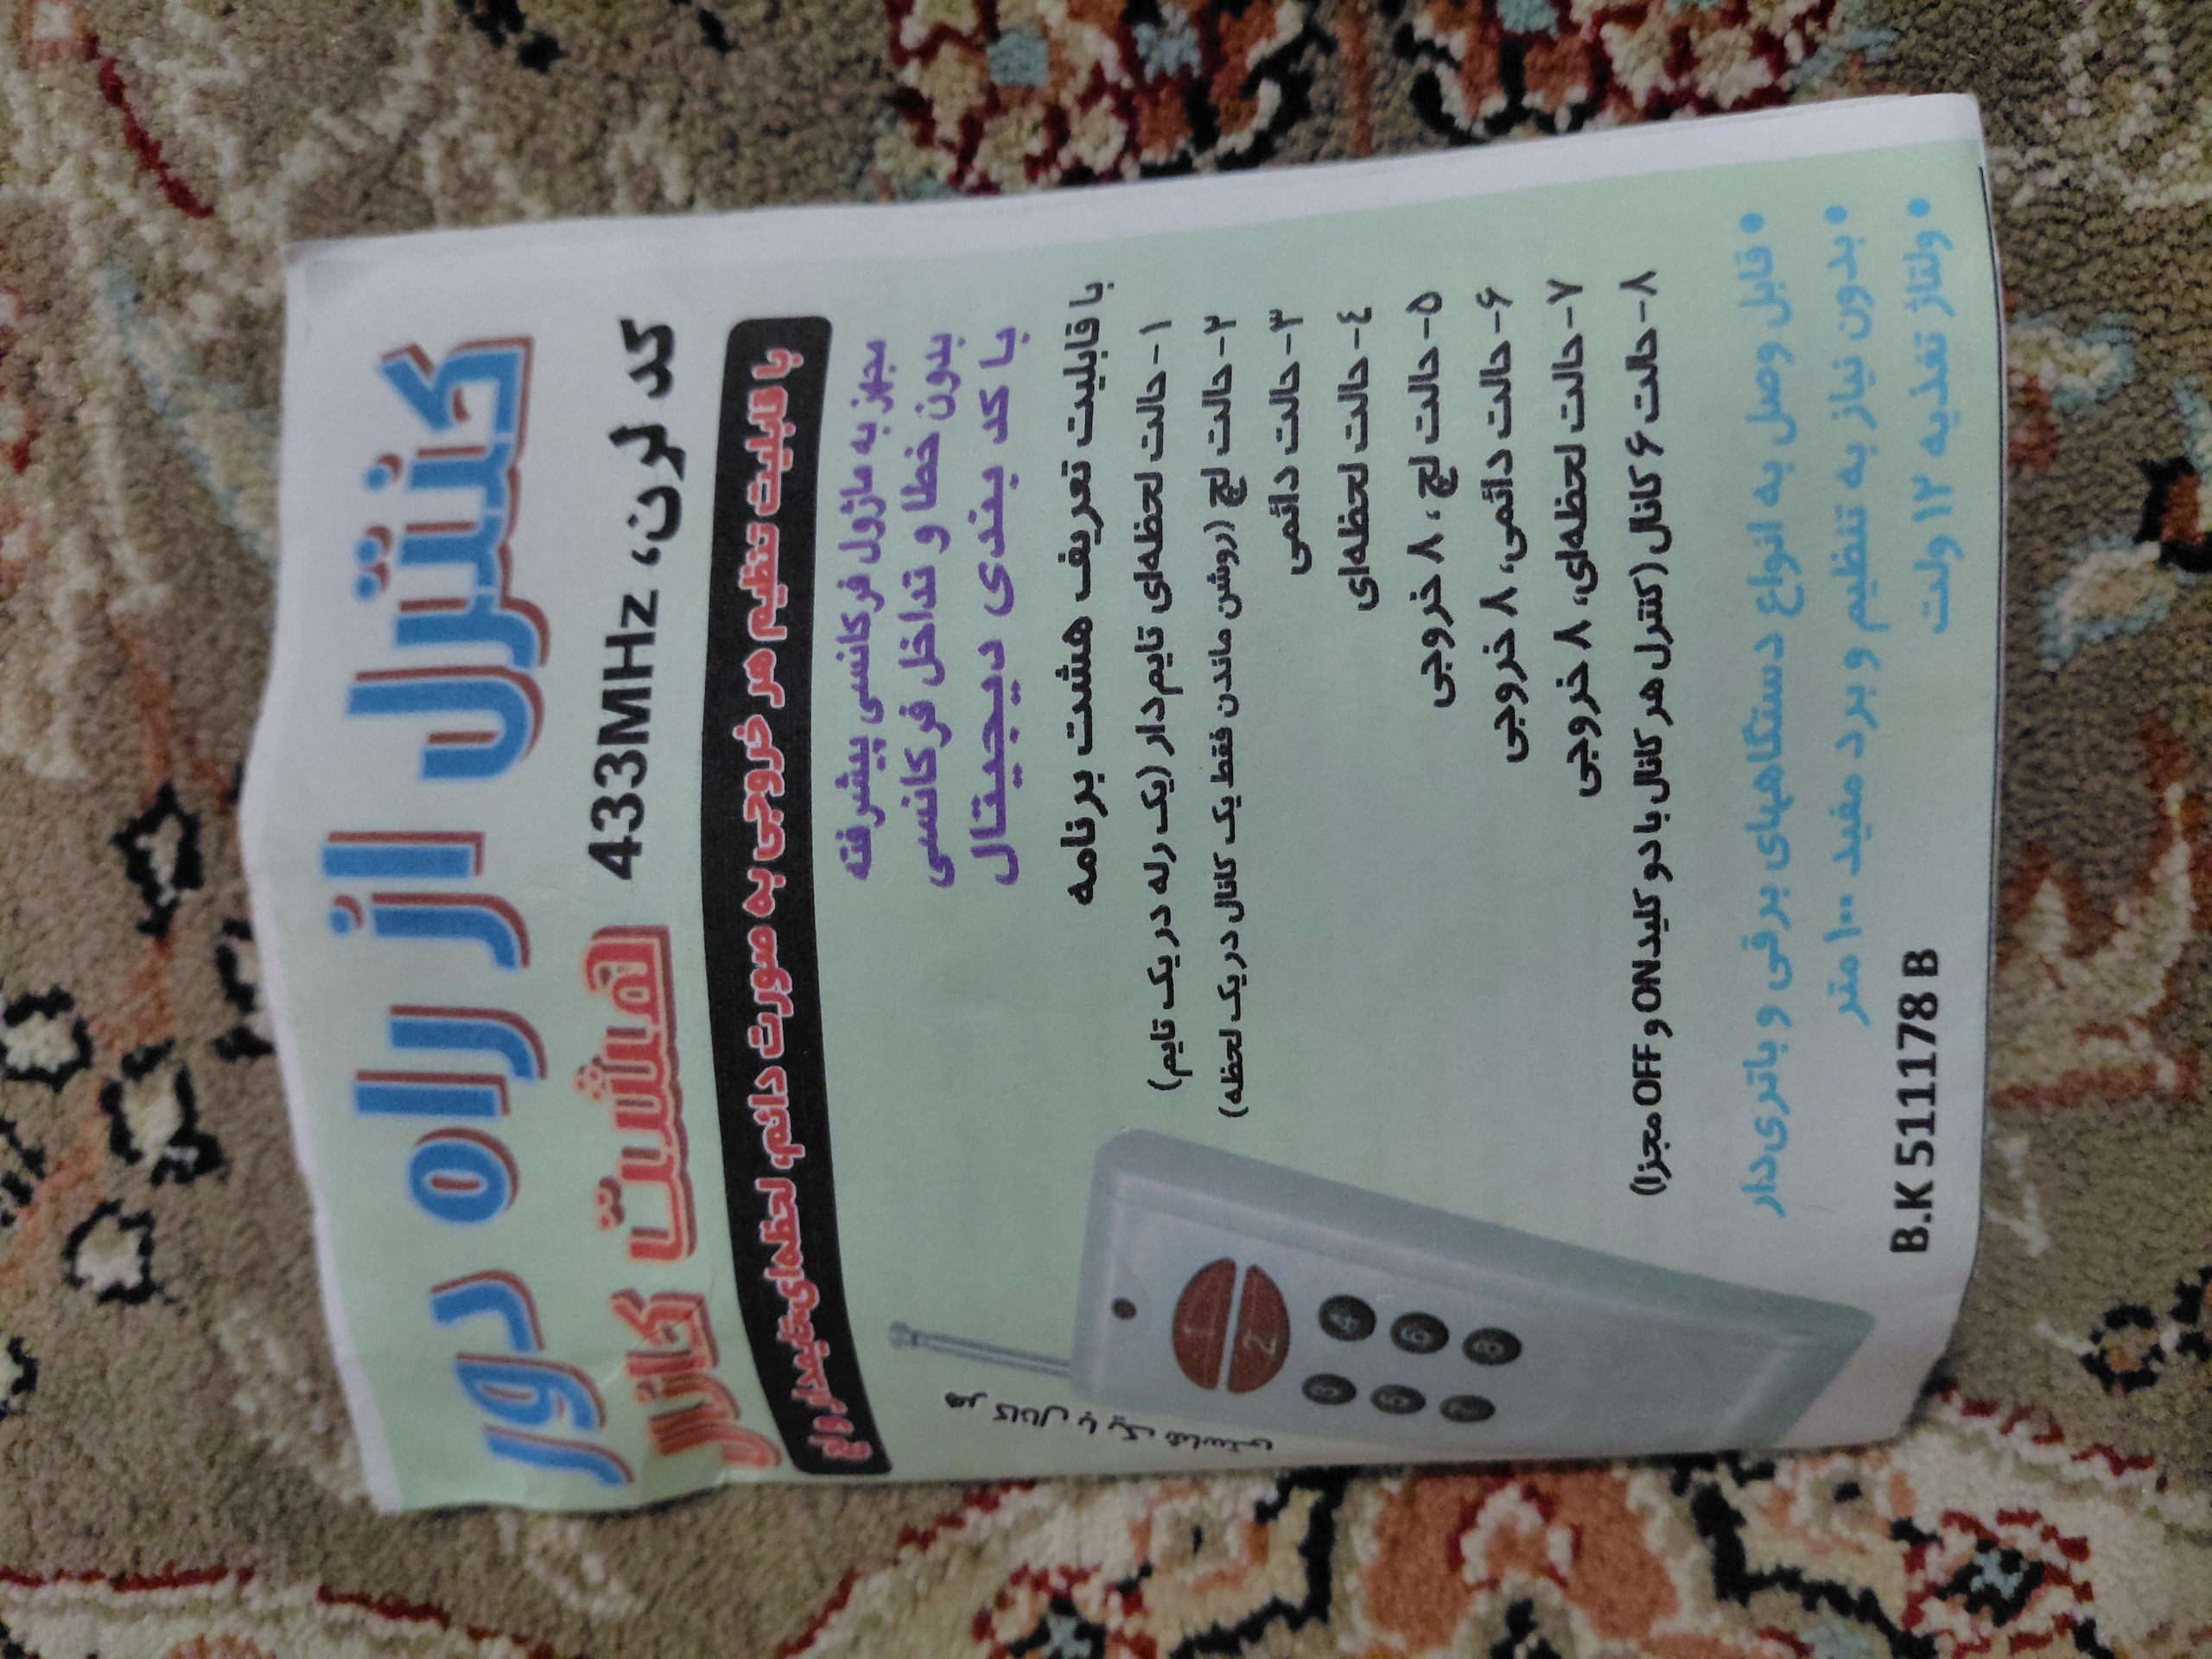 کنترل از راه دور
کد لرن، 433MHz هشت کانال
با قابلیت تنظیم هر خروجی به صورت دائم، لحظه‌ای، تایمدار و لچ
مجهز به ماژول فرکانسی پیشرفته
بدون خطا و تداخل فرکانسی
با کد بندی دیجیتال
با قابلیت تعریف هشت برنامه
۱- حالت لحظه‌ای تایم‌دار (یک رله در یک تایم)
۲- حالت لچ (روشن ماندن فقط یک کانال در یک لحظه)
۳- حالت دائمی
٤- حالت لحظه‌ای
۵- حالت لچ، ۸ خروجی
۶- حالت دائمی، ۸ خروجی
۷- حالت لحظه‌ای، ۸ خروجی
۸- حالت ۶ کانال (کنترل هر کانال با دو کلید ON و OFF مجزا)
1
2
3 4
5 6
7 8
• قابل وصل به انواع دستگاههای برقی و باتری‌دار
• بدون نیاز به تنظیم و برد مفید ۱۰۰ متر
• ولتاژ تغذیه ۱۲ ولت
B.K 511178 B